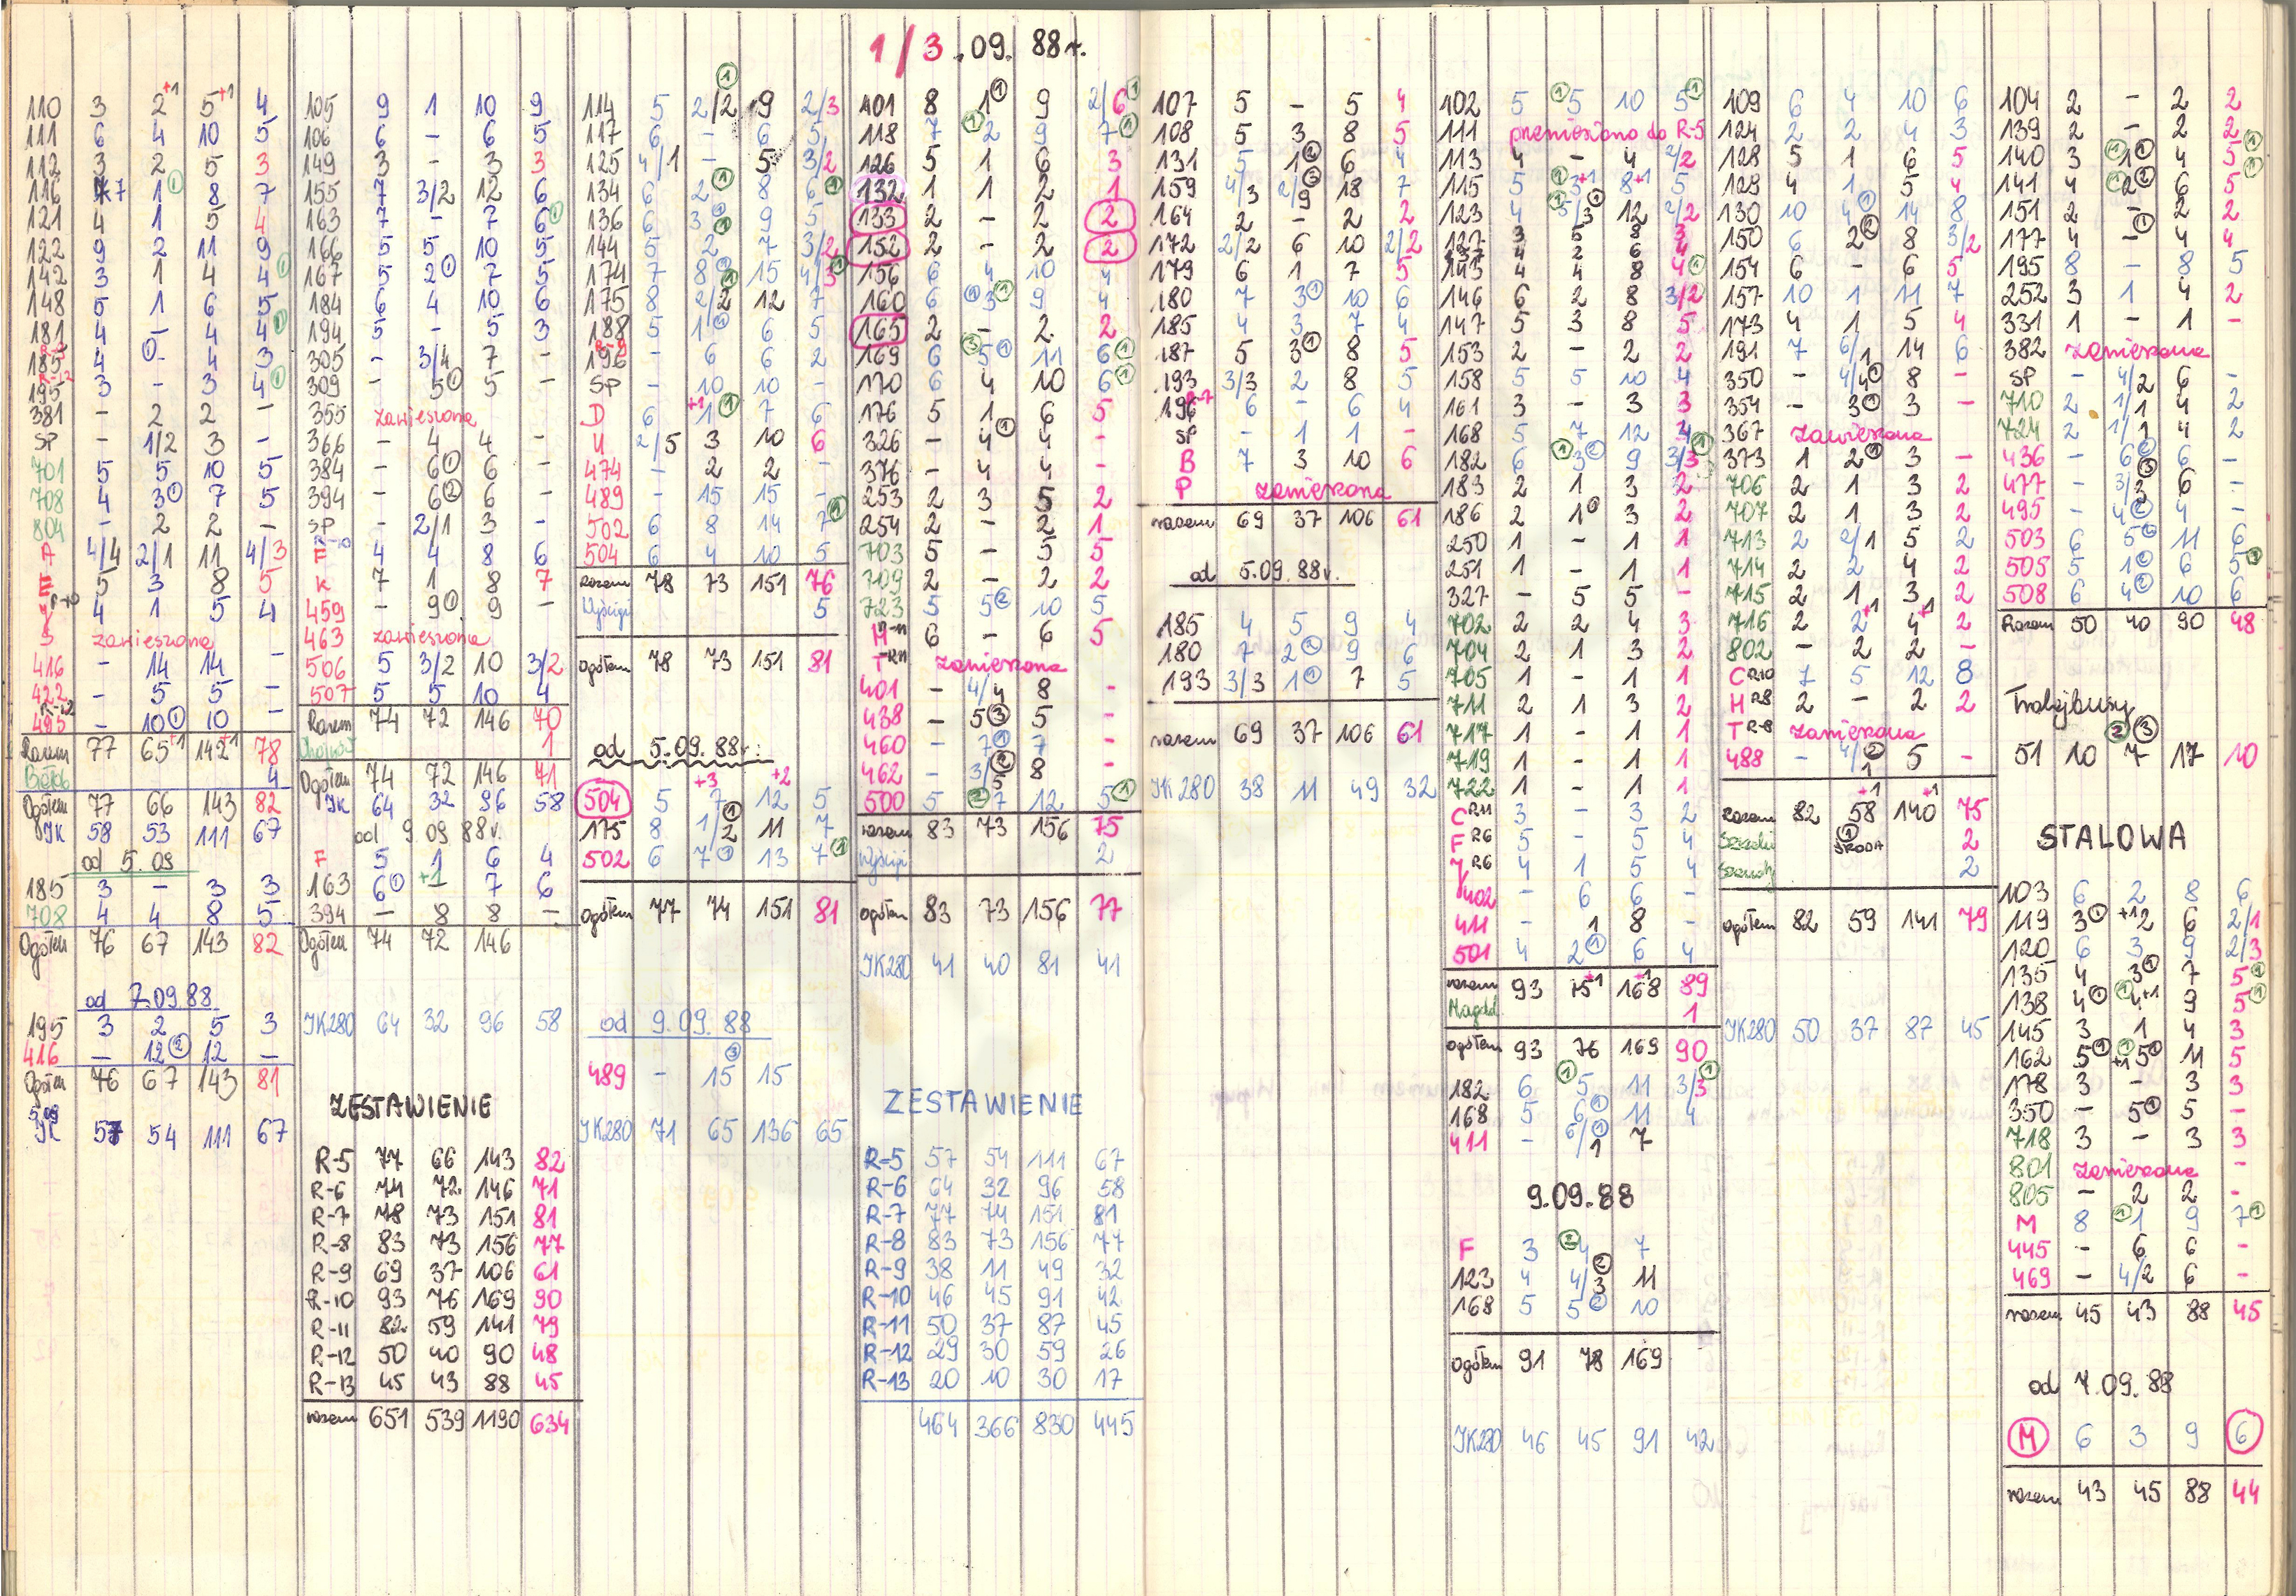 1/3.09.88r.
110 3 2+1 5+1 4
111 6 4 10 5
112 3 2 5 3
116 7 1① 8 7
121 4 1 5 4
122 9 2 11 9
142 3 1 4 4①
148 5 1 6 5
181 4 - 4 4①
185 4 - 4 3
195 3 - 3 4①
381 - 2 2 -
SP - 1/2 3 -
701 5 5 10 5
708 4 3① 7 5
804 - 2 2 -
A 4/4 2/1 11 4/3
E 5 3 8 5
Y 4 1 5 4
S zawieszona
416 - 14 14 -
422 - 5 5 -
495 - 10① 10 -
Razem 77 65+1 142+1 78
4
Ogółem 77 66 143 82
JK 58 53 111 67
od 5.09
185 3 - 3 3
708 4 4 8 5
Ogółem 76 67 143 82
od 7.09.88
195 3 2 5 3
416 - 12② 12 -
Ogółem 76 67 143 81
JK 57 54 111 67
105 9 1 10 9
106 6 - 6 5
149 3 - 3 3
155 7 3/2 12 6
163 7 - 7 6①
166 5 5 10 5
167 5 2① 7 5
184 6 4 10 6
194 5 - 5 3
305 - 3/4 7 -
309 - 5① 5 -
355 zawieszona
366 - 4 4 -
384 - 6① 6 -
394 - 6② 6 -
SP - 2/1 3 -
F 4 4 8 6
K 7 1 8 7
459 - 9① 9 -
463 zawieszona
506 5 3/2 10 3/2
507 5 5 10 4
Razem 74 72 146 70
1
Ogółem 74 72 146 71
JK 64 32 96 58
od 9 09 88r.
F 5 1 6 4
163 6① +1 7 6
394 - 8 8 -
Ogółem 74 72 146
JK280 64 32 96 58
ZESTAWIENIE
R-5 77 66 143 82
R-6 74 72 146 71
R-7 78 73 151 81
R-8 83 73 156 77
R-9 69 37 106 61
R-10 93 76 169 90
R-11 82 59 141 79
R-12 50 40 90 48
R-13 45 43 88 45
razem 651 539 1190 634
114 5 2/2① 9 2/3
117 6 - 6 5
125 4/1 - 5 3/2
134 6 2① 8 6①
136 6 3① 9 5
144 5 2① 7 3/2
174 7 8① 15 4/3①
175 8 2/2① 12 7
188 5 1① 6 5
196 - 6 6 2
SP - 10 10 -
D 6 +1 1① 7 6
U 2/5 3 10 6
474 - 2 2 -
489 - 15 15 -
502 6 8 14 7①
504 6 4 10 5
Razem 78 73 151 76
Wyścigi 5
ogółem 78 73 151 81
od 5.09.88r.
504 5 7+3 12+2 5
175 8 1/2① 11 7
502 6 7① 13 7①
ogółem 77 74 151 81
od 9.09.88
489 - 15③ 15
JK280 71 65 136 65
401 8 1① 9 2/6①
118 7 ①2 9 7①
126 5 1 6 3
132 1 1 2 1
133 2 - 2 2
152 2 - 2 2
156 6 4 10 4
160 6 ①3① 9 4
165 2 - 2 2
169 6 ③5① 11 6①
170 6 4 10 6①
176 5 1 6 5
326 - 4① 4 -
376 - 4 4 -
253 2 3 5 2
254 2 - 2 1
703 5 - 5 5
709 2 - 2 2
723 5 5② 10 5
M 6 - 6 5
T zawieszona
401 - 4/4 8 -
438 - 5③ 5 -
460 - 7① 7 -
462 - 3/5② 8 -
500 5 ②7 12 5①
razem 83 73 156 75
Wyścigi 2
ogółem 83 73 156 77
JK280 41 40 81 41
ZESTAWIENIE
R-5 57 54 111 67
R-6 64 32 96 58
R-7 77 74 151 81
R-8 83 73 156 77
R-9 38 11 49 32
R-10 46 45 91 42
R-11 50 37 87 45
R-12 29 30 59 26
R-13 20 10 30 17
464 366 830 445
107 5 - 5 4
108 5 3 8 5
131 5 1② 6 4
159 4/3 2/9③ 18 7
164 2 - 2 2
172 2/2 6 10 2/2
179 6 1 7 5
180 7 3① 10 6
185 4 3 7 4
187 5 3① 8 5
193 3/3 2 8 5
196 6 - 6 4
SP - 1 1 -
B 7 3 10 6
P zawieszona
razem 69 37 106 61
od 5.09.88r.
185 4 5 9 4
180 7 2② 9 6
193 3/3 1① 7 5
razem 69 37 106 61
JK280 38 11 49 32
102 5 ①5 10 5①
111 przeniesiono do R-5
113 4 - 4 2/2
115 5 ①3+1 8+1 5
123 4 ①5/3① 12 2/2
127 3 5 8 3
137 4 2 6 4
143 4 4 8 4①
146 6 2 8 3/2
147 5 3 8 5
153 2 - 2 2
158 5 5 10 4
161 3 - 3 3
168 5 7 12 4
182 6 ①3② 9 3/3①
183 2 1 3 2
186 2 1① 3 2
250 1 - 1 1
251 1 - 1 1
327 - 5 5 -
702 2 2 4 3
704 2 1 3 2
705 1 - 1 1
711 2 1 3 2
717 1 - 1 1
719 1 - 1 1
722 1 - 1 1
C R11 3 - 3 2
F R6 5 - 5 4
Y R6 4 1 5 4
402 - 6 6 -
411 - 1 8 -
501 4 2① 6 4
razem 93 75+1 168+1 89
1
ogółem 93 76 169 90
182 6 ①5 11 3/3①
168 5 6① 11 4
411 - 6/1① 7
9.09.88
F 3 ②4 7
123 4 4/3② 11
168 5 5② 10
ogółem 91 78 169
JK280 46 45 91 42
109 6 4 10 6
124 2 2 4 3
128 5 1 6 5
129 4 1① 5 4
130 10 4① 14 8
150 6 2② 8 3/2
154 6 - 6 5
157 10 1 11 7
173 4 1 5 4
191 7 6/1 14 6
350 - 4/4① 8 -
354 - 3① 3 -
367 zawieszona
373 1 2① 3 -
706 2 1 3 2
707 2 1 3 2
713 2 2/1 5 2
714 2 2 4 2
715 2 1 3 2
716 2 2+1 4+1 2
802 - 2 2 -
C R10 7 5 12 8
H R8 2 - 2 2
T R-8 zawieszona
488 - 4/1② 5 -
razem 82 58+1 140+1 75
① ŚRODA 2
2
ogółem 82 59 141 79
JK280 50 37 87 45
104 2 - 2 2
139 2 - 2 2
140 3 ①1① 4 5①
141 4 ①2② 6 5①
151 2 - 2 2
177 4 -① 4 4
195 8 - 8 5
252 3 1 4 2
331 1 - 1 -
382 zawieszona
SP - 4/2 6 -
710 2 1/1 4 2
724 2 1/1 4 2
436 - 6② 6 -
477 - 3/3③ 6 -
495 - 4② 4 -
503 6 5① 11 6
505 5 1① 6 5①
508 6 4② 10 6
Razem 50 40 90 48
Trolejbusy
② ③
51 10 7 17 10
STALOWA
103 6 2 8 6
119 3① +1 2 6 2/1
120 6 3 9 2/3
135 4 3① 7 5①
138 4① ①4+1 9 5①
145 3 1 4 3
162 5① ①+1 5① 11 5
178 3 - 3 3
350 - 5① 5 -
718 3 - 3 3
801 zawieszona -
805 - 2 2 -
M 8 ①1 9 7①
445 - 6 6 -
469 - 4/2 6 -
razem 45 43 88 45
od 7.09.88
M 6 3 9 6
razem 43 45 88 44